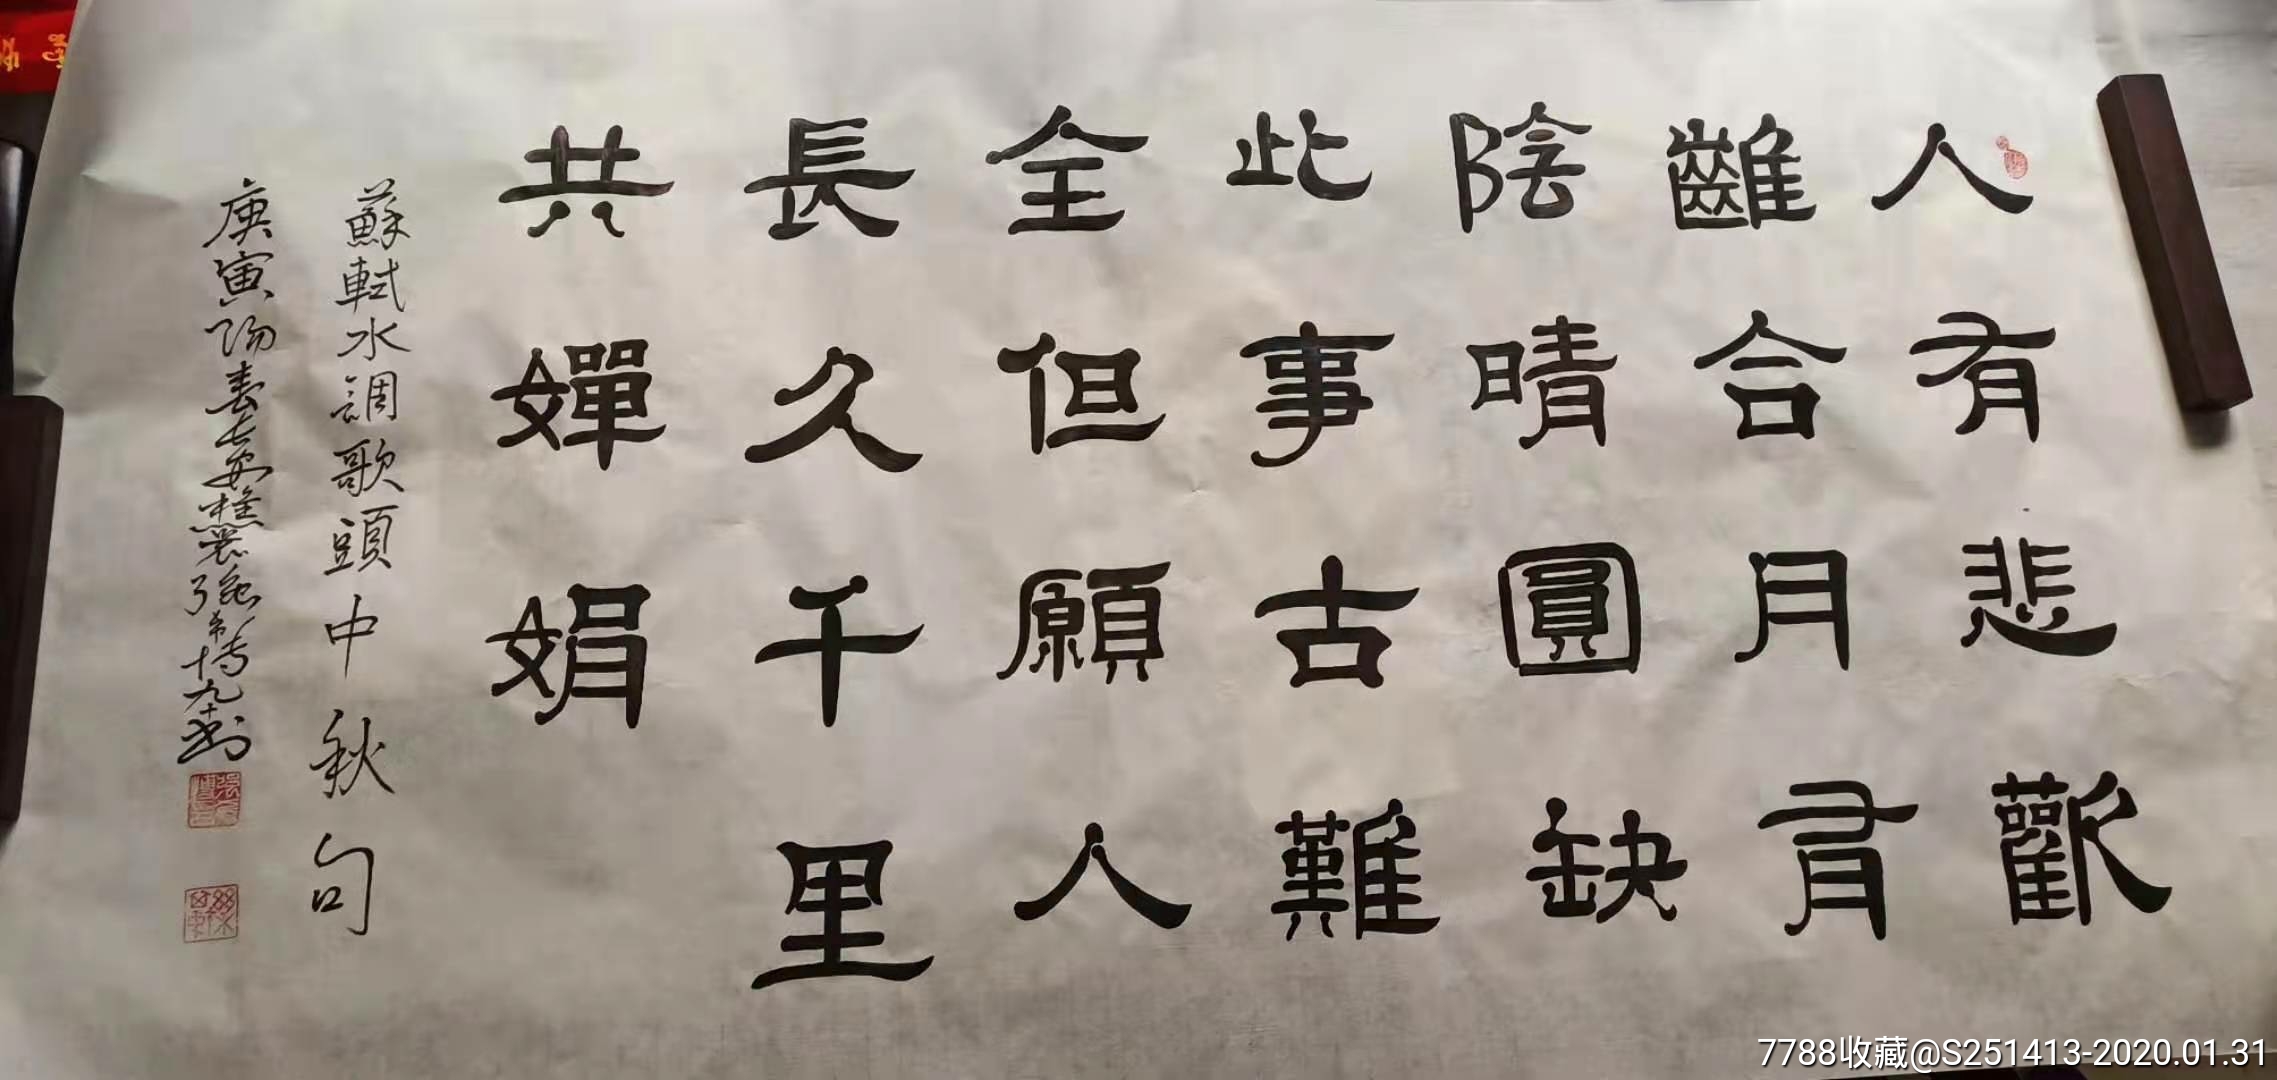 人有悲歡
離合月有
陰晴圓缺
此事古難
全但願人
長久千里
共嬋娟
蘇軾水調歌頭中秋句
庚寅陽春長安
7788收藏@S251413-2020.01.31